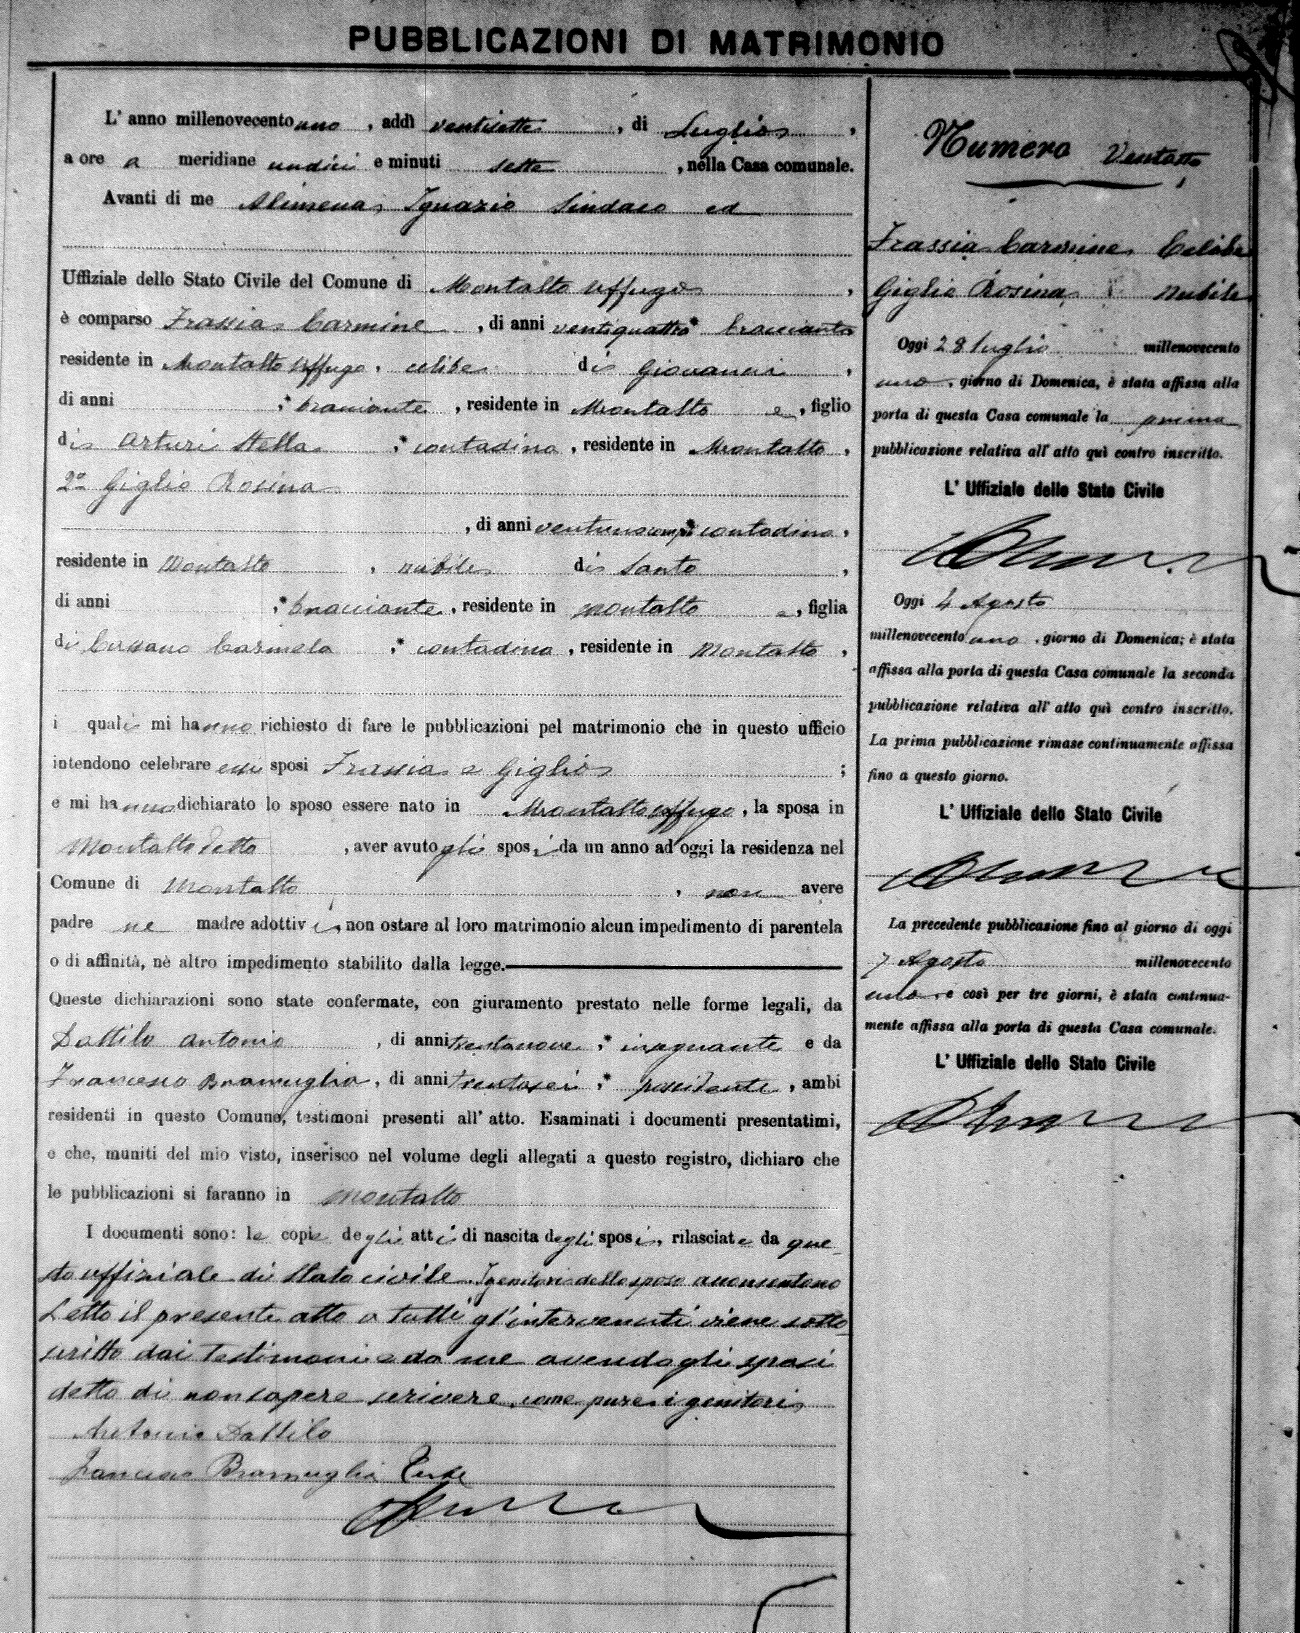 PUBBLICAZIONI DI MATRIMONIO
L' anno millenovecento uno, addì ventisette, di Luglio,
a ore a meridiane undici e minuti sette, nella Casa comunale.
Avanti di me Alimena Ignazio Sindaco ed
Uffiziale dello Stato Civile del Comune di Montalto Uffugo,
è comparso Frassia Carmine, di anni ventiquattro* bracciante
residente in Montalto Uffugo, celibe di Giovanni,
di anni ,* bracciante, residente in Montalto e, figlio
di Arturi Stella ,* contadina, residente in Montalto,
2º Giglio Rosina
, di anni ventuno comp.* contadina,
residente in Montalto, nubile di Santo,
di anni ,* bracciante, residente in Montalto e, figlia
di Cassano Carmela ,* contadina, residente in Montalto,
i quali mi hanno richiesto di fare le pubblicazioni pel matrimonio che in questo ufficio
intendono celebrare essi sposi Frassia e Giglio ;
e mi hanno dichiarato lo sposo essere nato in Montalto Uffugo, la sposa in
Montalto detto, aver avuto gli sposi da un anno ad oggi la residenza nel
Comune di Montalto, non avere
padre ne madre adottivi, non ostare al loro matrimonio alcun impedimento di parentela
o di affinità, nè altro impedimento stabilito dalla legge.
Queste dichiarazioni sono state confermate, con giuramento prestato nelle forme legali, da
Dattilo Antonio, di anni trentanove,* insegnante e da
Francesco Bramuglia, di anni trentasei,* possidente, ambi
residenti in questo Comune, testimoni presenti all' atto. Esaminati i documenti presentatimi,
e che, muniti del mio visto, inserisco nel volume degli allegati a questo registro, dichiaro che
le pubblicazioni si faranno in Montalto
I documenti sono: le copie degli atti di nascita degli sposi, rilasciate da que-
sto uffiziale di Stato civile. I genitori dello sposo acconsentono
Letto il presente atto a tutti gl'intervenuti viene sotto-
scritto dai testimoni e da me avendo gli sposi
detto di non sapere scrivere, come pure i genitori
Antonio Dattilo
Francesco Bramuglia Teste
Numero Ventotto
Frassia Carmine Celibe
Giglio Rosina nubile
Oggi 28 luglio millenovecento
uno, giorno di Domenica, è stata affissa alla
porta di questa Casa comunale la prima
pubblicazione relativa all' atto quì contro inscritto.
L' Uffiziale dello Stato Civile
Oggi 4 Agosto
millenovecento uno, giorno di Domenica; è stata
affissa alla porta di questa Casa comunale la seconda
pubblicazione relativa all' atto quì contro inscritto.
La prima pubblicazione rimase continuamente affissa
fino a questo giorno.
L' Uffiziale dello Stato Civile
La precedente pubblicazione fino al giorno di oggi
7 Agosto millenovecento
uno e così per tre giorni, è stata continua-
mente affissa alla porta di questa Casa comunale.
L' Uffiziale dello Stato Civile